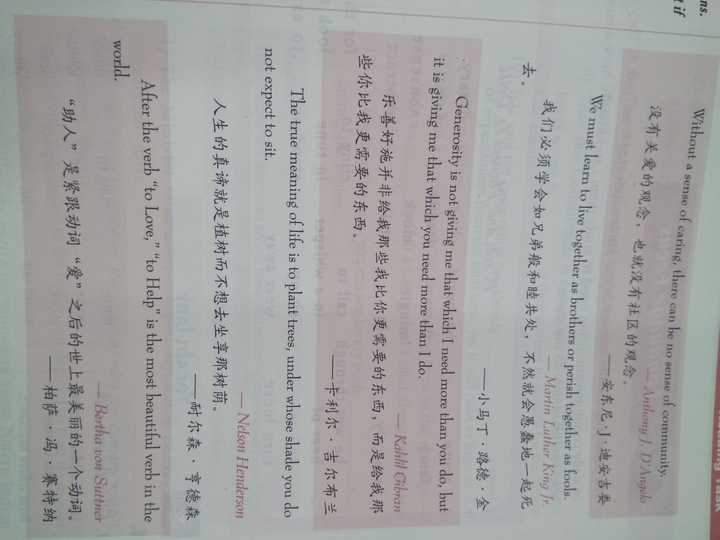 ns.
t if
Without a sense of caring, there can be no sense of community.
— Anthony J. D'Angelo
没有关爱的观念，也就没有社区的观念。
——安东尼·J·迪安吉娄
We must learn to live together as brothers or perish together as fools.
— Martin Luther King Jr.
我们必须学会如兄弟般和睦共处，不然就会愚蠢地一起死
去。
——小马丁·路德·金
Generosity is not giving me that which I need more than you do, but
it is giving me that which you need more than I do.
— Kahlil Gibran
乐善好施并非给我那些我比你更需要的东西，而是给我那
些你比我更需要的东西。
——卡利尔·吉尔布兰
The true meaning of life is to plant trees, under whose shade you do
not expect to sit.
— Nelson Henderson
人生的真谛就是植树而不想去坐享那树荫。
——耐尔森·亨德森
After the verb “to Love,” “to Help” is the most beautiful verb in the
world.
— Bertha von Suttner
“助人”是紧跟动词“爱”之后的世上最美丽的一个动词。
——柏萨·冯·赛特纳